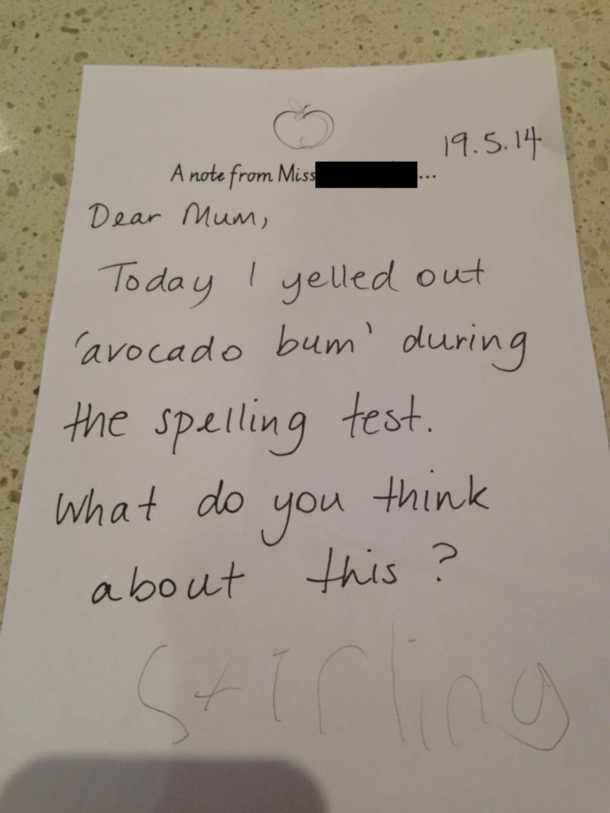 19.5.14
A note from Miss ...
Dear Mum,
Today I yelled out
'avocado bum' during
the spelling test.
What do you think
about this?
Stirling